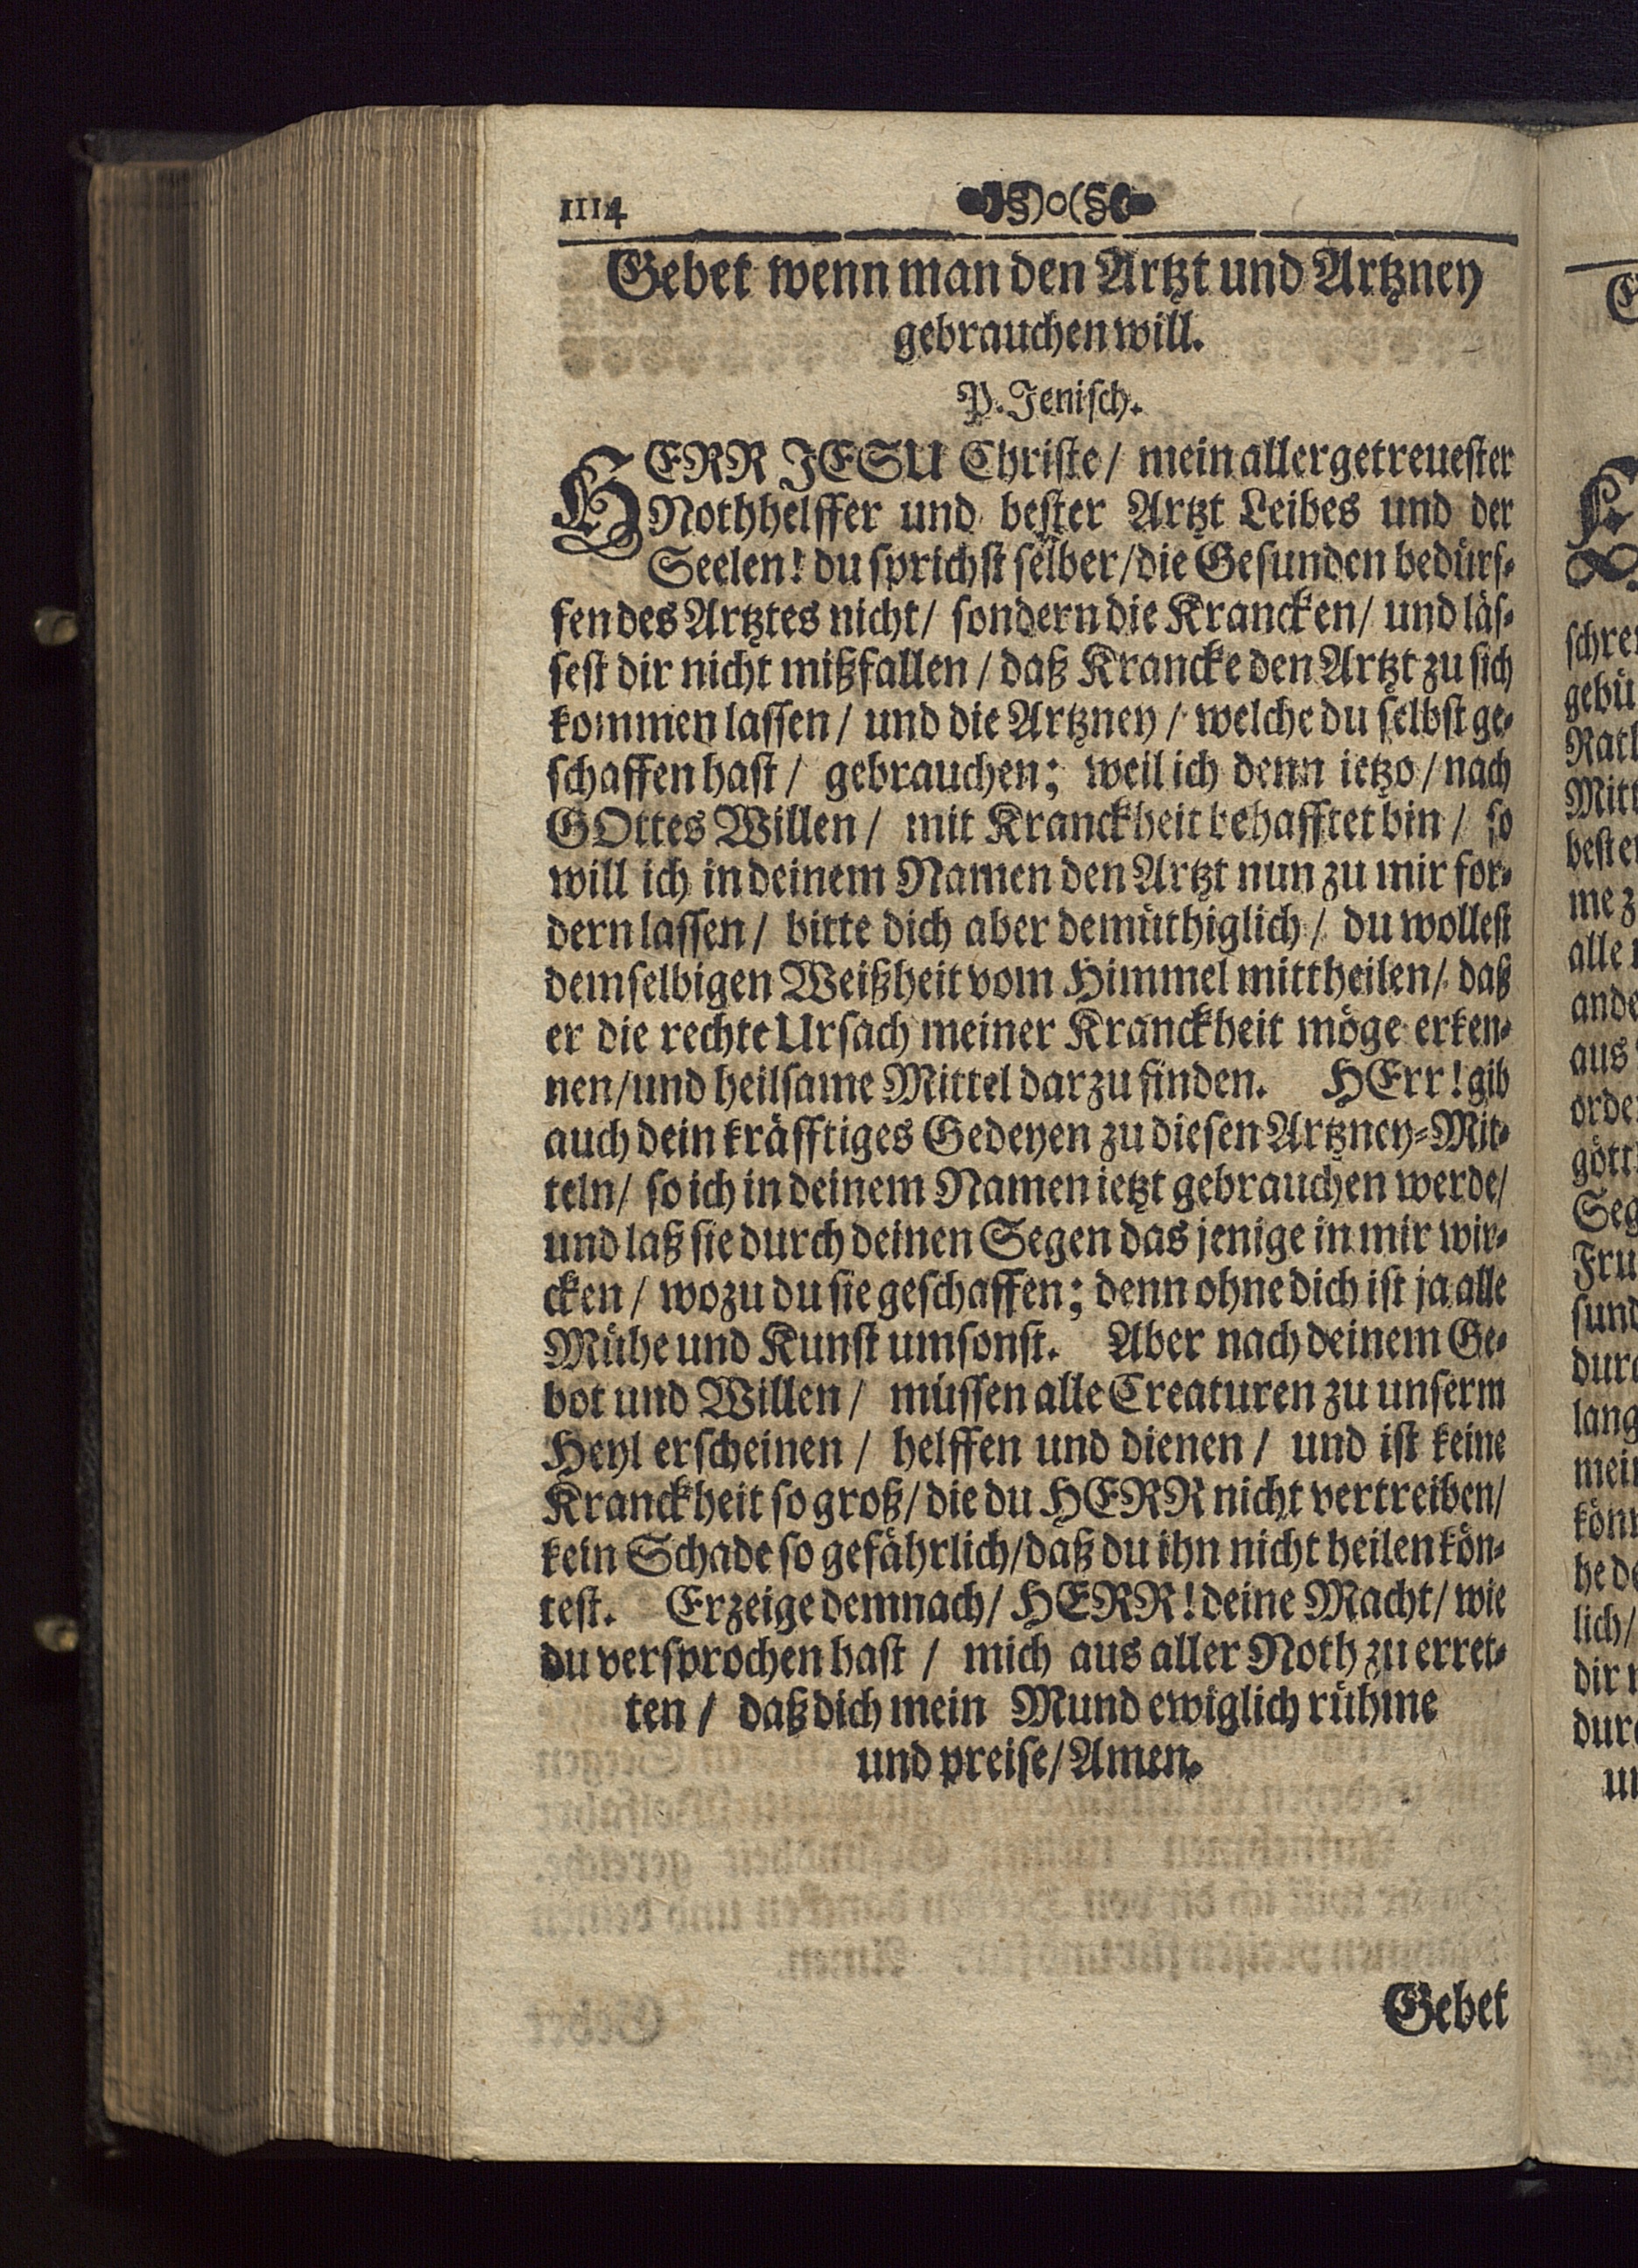 1114 §)o(§
Gebet wenn man den Artzt und Artzney
gebrauchen will.
P. Jenisch.
HERR JESU Christe/ mein allergetreuester
Nothhelffer und bester Artzt Leibes und der
Seelen! du sprichst selber/die Gesunden bedürf-
fen des Artztes nicht/ sondern die Krancken/ und läs-
sest dir nicht mißfallen/ daß Krancke den Artzt zu sich
kommen lassen/ und die Artzney/ welche du selbst ge-
schaffen hast/ gebrauchen; weil ich denn ietzo/ nach
GOttes Willen/ mit Kranckheit behafftet bin/ so
will ich in deinem Namen den Artzt nun zu mir for-
dern lassen/ bitte dich aber demüthiglich/ du wollest
demselbigen Weißheit vom Himmel mittheilen/ daß
er die rechte Ursach meiner Kranckheit möge erken-
nen/und heilsame Mittel darzu finden. HErr! gib
auch dein kräfftiges Gedeyen zu diesen Artzney-Mit-
teln/ so ich in deinem Namen ietzt gebrauchen werde/
und laß sie durch deinen Segen das jenige in mir wir-
cken/ wozu du sie geschaffen; denn ohne dich ist ja alle
Mühe und Kunst umsonst. Aber nach deinem Ge-
bot und Willen/ müssen alle Creaturen zu unserm
Heyl erscheinen/ helffen und dienen/ und ist keine
Kranckheit so groß/ die du HERR nicht vertreiben/
kein Schade so gefährlich/daß du ihn nicht heilen kön-
test. Erzeige demnach/ HERR! deine Macht/ wie
du versprochen hast/ mich aus aller Noth zu erret-
ten/ daß dich mein Mund ewiglich rühme
und preise/ Amen.
Gebet